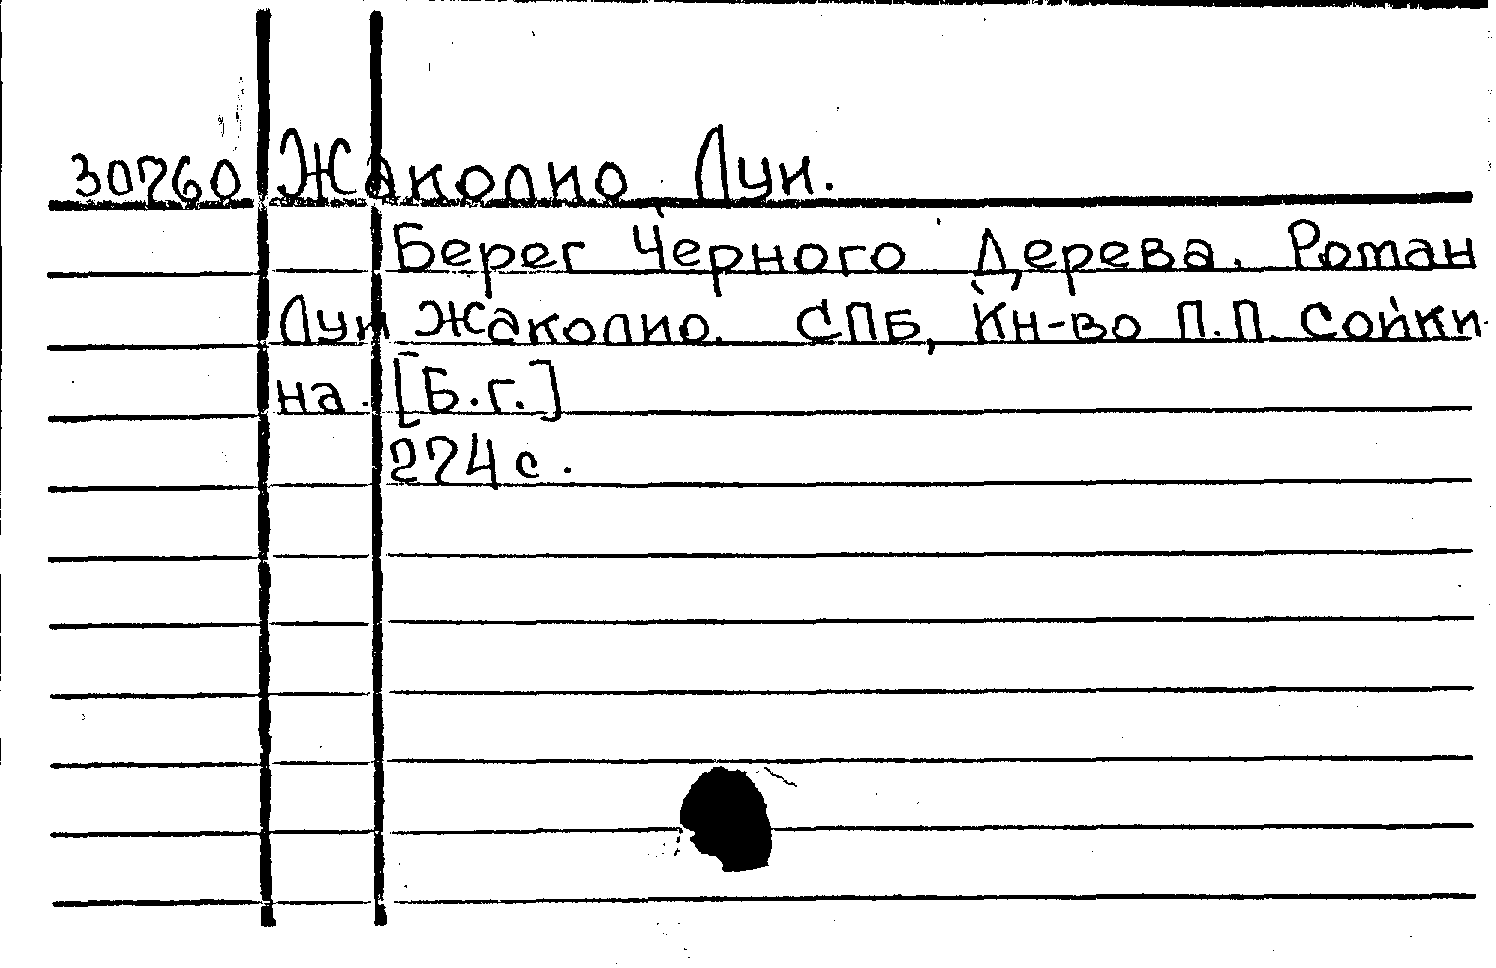 30760 Жаколио Луи.
Берег Черного Дерева. Роман
Луи Жаколио. СПБ, Кн-во П.П. Сойки-
на. [Б.г.]
274 с.